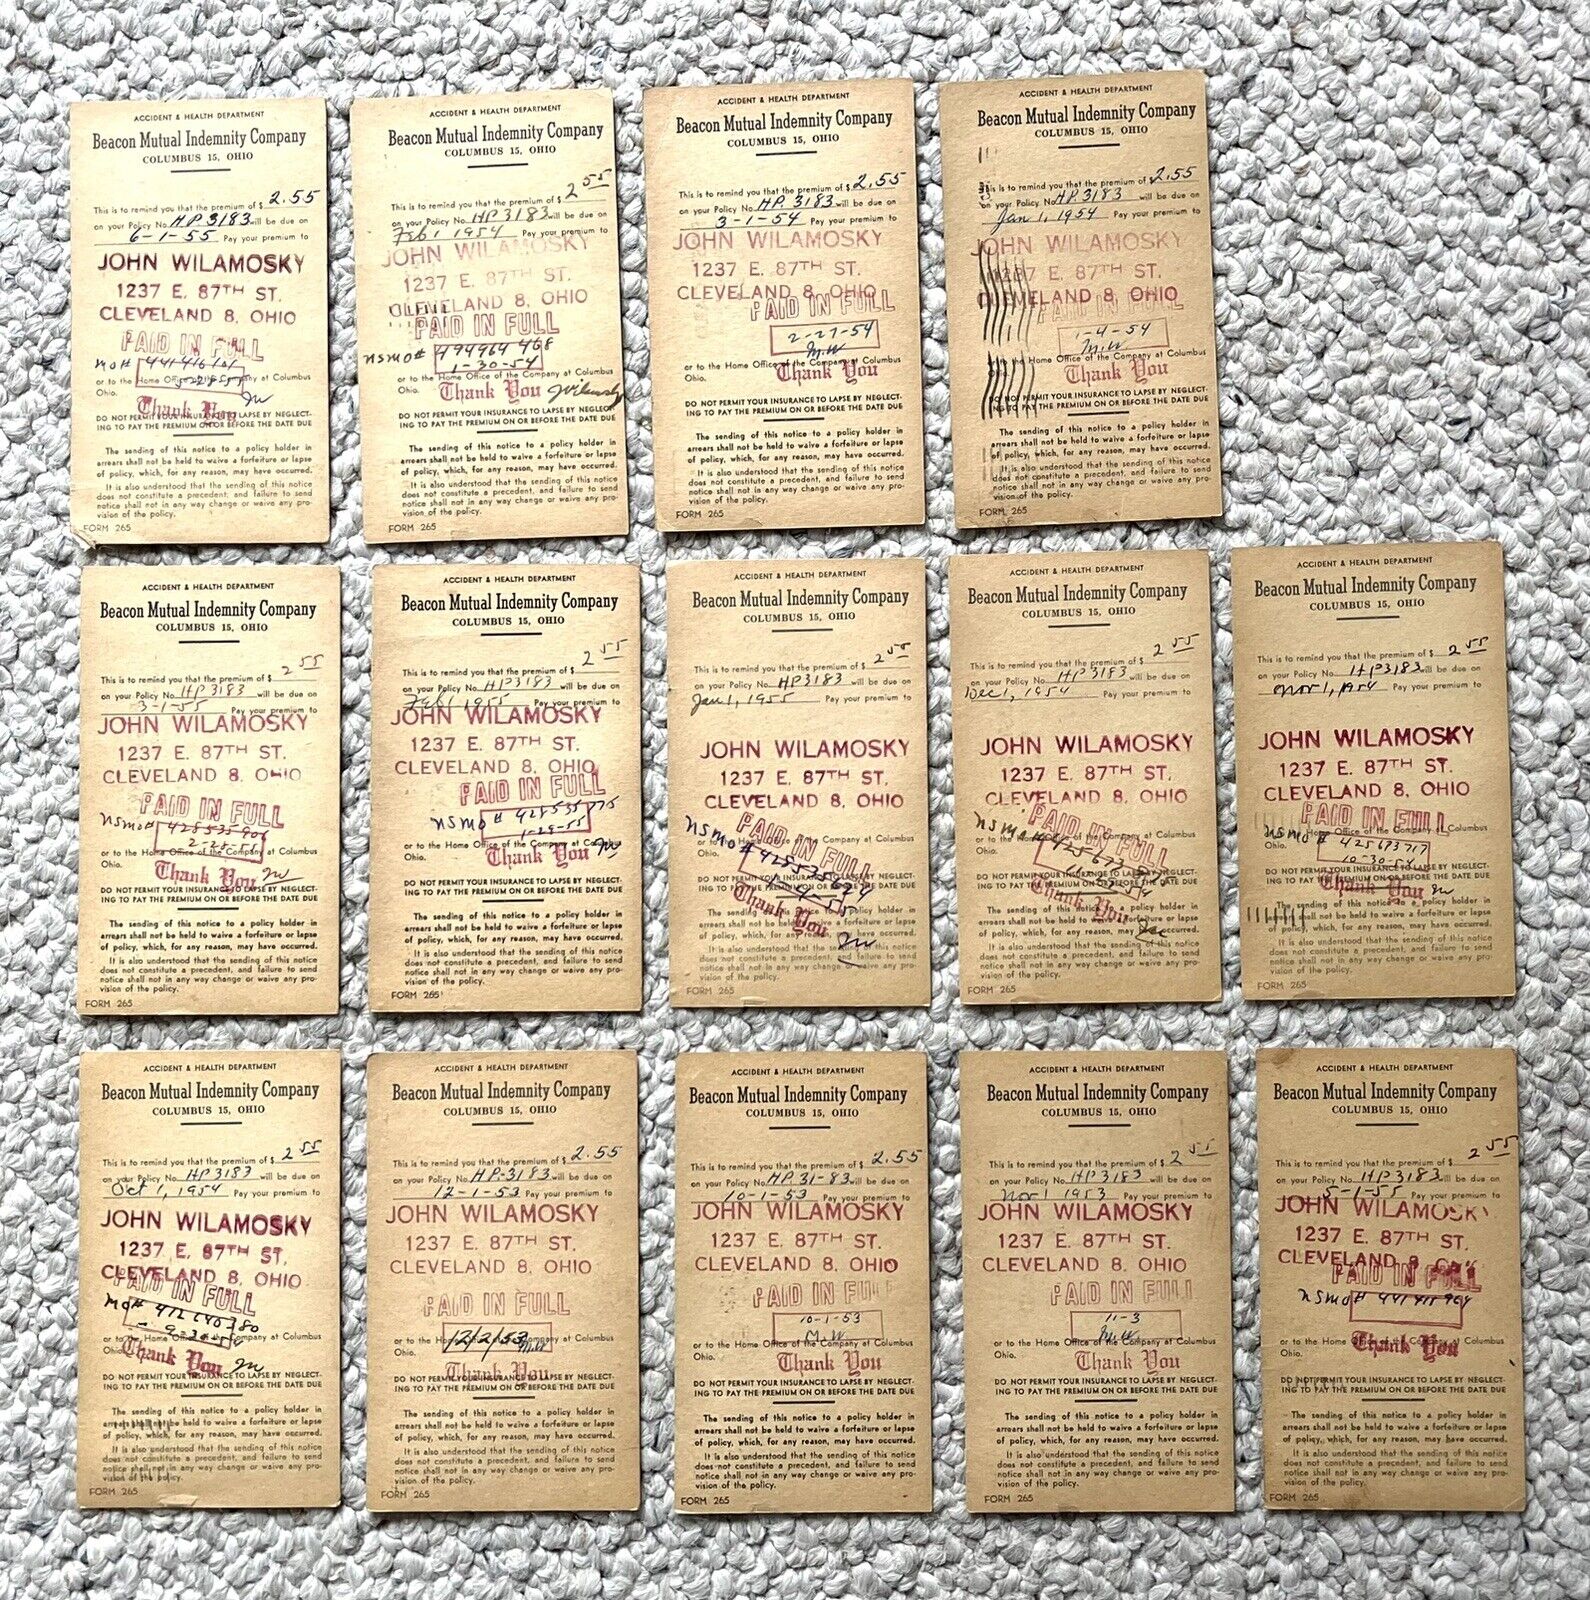 ACCIDENT & HEALTH DEPARTMENT
Beacon Mutual Indemnity Company
COLUMBUS 15, OHIO
This is to remind you that the premium of $ 2.55
on your Policy No. HP 3183 will be due on
6-1-55 Pay your premium to
JOHN WILAMOSKY
1237 E. 87TH ST.
CLEVELAND 8, OHIO
PAID IN FULL
mo#
or to the Home Office of the Company at Columbus
Ohio.
Thank You JW
DO NOT PERMIT YOUR INSURANCE TO LAPSE BY NEGLECT-
ING TO PAY THE PREMIUM ON OR BEFORE THE DATE DUE
The sending of this notice to a policy holder in
arrears shall not be held to waive a forfeiture or lapse
of policy, which, for any reason, may have occurred.
It is also understood that the sending of this notice
does not constitute a precedent, and failure to send
notice shall not in any way change or waive any pro-
vision of the policy.
FORM 265
ACCIDENT & HEALTH DEPARTMENT
Beacon Mutual Indemnity Company
COLUMBUS 15, OHIO
This is to remind you that the premium of $ 2 55
on your Policy No. HP 3183 will be due on
Feb 1 1954 Pay your premium to
JOHN WILAMOSKY
1237 E. 87TH ST.
CLEVELAND 8, OHIO
PAID IN FULL
nsmo# 494964468
1-30-54
or to the Home Office of the Company at Columbus
Ohio.
Thank You JWilamosky
DO NOT PERMIT YOUR INSURANCE TO LAPSE BY NEGLECT-
ING TO PAY THE PREMIUM ON OR BEFORE THE DATE DUE
The sending of this notice to a policy holder in
arrears shall not be held to waive a forfeiture or lapse
of policy, which, for any reason, may have occurred.
It is also understood that the sending of this notice
does not constitute a precedent, and failure to send
notice shall not in any way change or waive any pro-
vision of the policy.
FORM 265
ACCIDENT & HEALTH DEPARTMENT
Beacon Mutual Indemnity Company
COLUMBUS 15, OHIO
This is to remind you that the premium of $ 2.55
on your Policy No. HP. 3183 will be due on
3-1-54 Pay your premium to
JOHN WILAMOSKY
1237 E. 87TH ST.
CLEVELAND 8, OHIO
PAID IN FULL
2-27-54
M.W
or to the Home Office of the Company at Columbus
Ohio.
Thank You
DO NOT PERMIT YOUR INSURANCE TO LAPSE BY NEGLECT-
ING TO PAY THE PREMIUM ON OR BEFORE THE DATE DUE
The sending of this notice to a policy holder in
arrears shall not be held to waive a forfeiture or lapse
of policy, which, for any reason, may have occurred.
It is also understood that the sending of this notice
does not constitute a precedent, and failure to send
notice shall not in any way change or waive any pro-
vision of the policy.
FORM 265
ACCIDENT & HEALTH DEPARTMENT
Beacon Mutual Indemnity Company
COLUMBUS 15, OHIO
This is to remind you that the premium of $ 2.55
on your Policy No. HP 3183 will be due on
Jan 1, 1954 Pay your premium to
JOHN WILAMOSKY
1237 E. 87TH ST.
CLEVELAND 8, OHIO
PAID IN FULL
1-4-54
M.W
or to the Home Office of the Company at Columbus
Thank You
DO NOT PERMIT YOUR INSURANCE TO LAPSE BY NEGLECT-
ING TO PAY THE PREMIUM ON OR BEFORE THE DATE DUE
The sending of this notice to a policy holder in
arrears shall not be held to waive a forfeiture or lapse
of policy, which, for any reason, may have occurred.
It is also understood that the sending of this notice
does not constitute a precedent, and failure to send
notice shall not in any way change or waive any pro-
vision of the policy.
FORM 265
ACCIDENT & HEALTH DEPARTMENT
Beacon Mutual Indemnity Company
COLUMBUS 15, OHIO
This is to remind you that the premium of $ 2 55
on your Policy No. HP 3183 will be due on
3-1-55 Pay your premium to
JOHN WILAMOSKY
1237 E. 87TH ST.
CLEVELAND 8, OHIO
PAID IN FULL
nsmo#
or to the Home Office of the Company at Columbus
Ohio.
Thank You JW
DO NOT PERMIT YOUR INSURANCE TO LAPSE BY NEGLECT-
ING TO PAY THE PREMIUM ON OR BEFORE THE DATE DUE
The sending of this notice to a policy holder in
arrears shall not be held to waive a forfeiture or lapse
of policy, which, for any reason, may have occurred.
It is also understood that the sending of this notice
does not constitute a precedent, and failure to send
notice shall not in any way change or waive any pro-
vision of the policy.
FORM 265
ACCIDENT & HEALTH DEPARTMENT
Beacon Mutual Indemnity Company
COLUMBUS 15, OHIO
This is to remind you that the premium of $ 2 55
on your Policy No. HP 3183 will be due on
Feb 1 1955 Pay your premium to
JOHN WILAMOSKY
1237 E. 87TH ST.
CLEVELAND 8, OHIO
PAID IN FULL
nsmo# 428535775
1-29-55
or to the Home Office of the Company at
Ohio.
Thank You JW
DO NOT PERMIT YOUR INSURANCE TO LAPSE BY NEGLECT-
ING TO PAY THE PREMIUM ON OR BEFORE THE DATE DUE
The sending of this notice to a policy holder in
arrears shall not be held to waive a forfeiture or lapse
of policy, which, for any reason, may have occurred.
It is also understood that the sending of this notice
does not constitute a precedent, and failure to send
notice shall not in any way change or waive any pro-
vision of the policy.
FORM 265
ACCIDENT & HEALTH DEPARTMENT
Beacon Mutual Indemnity Company
COLUMBUS 15, OHIO
This is to remind you that the premium of $ 2 55
on your Policy No. HP3183 will be due on
Jan 1, 1955 Pay your premium to
JOHN WILAMOSKY
1237 E. 87TH ST.
CLEVELAND 8, OHIO
PAID IN FULL
nsmo#
or to the Home Office of the Company at Columbus
Ohio.
DO NOT PERMIT YOUR INSURANCE TO LAPSE BY NEGLECT-
ING TO PAY THE PREMIUM ON OR BEFORE THE DATE DUE
Thank You
The sending of this notice to a policy holder in
arrears shall not be held to waive a forfeiture or lapse
of policy, which, for any reason, may have occurred.
JW
It is also understood that the sending of this notice
does not constitute a precedent, and failure to send
notice shall not in any way change or waive any pro-
vision of the policy.
FORM 265
ACCIDENT & HEALTH DEPARTMENT
Beacon Mutual Indemnity Company
COLUMBUS 15, OHIO
This is to remind you that the premium of $ 2 55
on your Policy No. HP3183 will be due on
Dec 1, 1954 Pay your premium to
JOHN WILAMOSKY
1237 E. 87TH ST.
CLEVELAND 8, OHIO
PAID IN FULL
nsmo#
or to the Home Office of the Company at Columbus
Ohio.
DO NOT PERMIT YOUR INSURANCE TO LAPSE BY NEGLECT-
ING TO PAY THE PREMIUM ON OR BEFORE THE DATE DUE
Thank You
The sending of this notice to a policy holder in
arrears shall not be held to waive a forfeiture or lapse
of policy, which, for any reason, may have occurred.
It is also understood that the sending of this notice
does not constitute a precedent, and failure to send
notice shall not in any way change or waive any pro-
vision of the policy.
FORM 265
ACCIDENT & HEALTH DEPARTMENT
Beacon Mutual Indemnity Company
COLUMBUS 15, OHIO
This is to remind you that the premium of $ 2 55
on your Policy No. HP3183 will be due on
Nov 1, 1954 Pay your premium to
JOHN WILAMOSKY
1237 E. 87TH ST.
CLEVELAND 8, OHIO
PAID IN FULL
nsmo# 425673717
10-30-54
or to the Home Office of the Company at Columbus
Ohio.
Thank You JW
DO NOT PERMIT YOUR INSURANCE TO LAPSE BY NEGLECT-
ING TO PAY THE PREMIUM ON OR BEFORE THE DATE DUE
The sending of this notice to a policy holder in
arrears shall not be held to waive a forfeiture or lapse
of policy, which, for any reason, may have occurred.
It is also understood that the sending of this notice
does not constitute a precedent, and failure to send
notice shall not in any way change or waive any pro-
vision of the policy.
FORM 265
ACCIDENT & HEALTH DEPARTMENT
Beacon Mutual Indemnity Company
COLUMBUS 15, OHIO
This is to remind you that the premium of $ 2 55
on your Policy No. HP 3183 will be due on
Oct 1, 1954 Pay your premium to
JOHN WILAMOSKY
1237 E. 87TH ST.
CLEVELAND 8, OHIO
PAID IN FULL
mo# 412640380
or to the Home Office of the Company at Columbus
Ohio.
Thank You JW
DO NOT PERMIT YOUR INSURANCE TO LAPSE BY NEGLECT-
ING TO PAY THE PREMIUM ON OR BEFORE THE DATE DUE
The sending of this notice to a policy holder in
arrears shall not be held to waive a forfeiture or lapse
of policy, which, for any reason, may have occurred.
It is also understood that the sending of this notice
does not constitute a precedent, and failure to send
notice shall not in any way change or waive any pro-
vision of the policy.
FORM 265
ACCIDENT & HEALTH DEPARTMENT
Beacon Mutual Indemnity Company
COLUMBUS 15, OHIO
This is to remind you that the premium of $ 2.55
on your Policy No. HP-3183 will be due on
12-1-53 Pay your premium to
JOHN WILAMOSKY
1237 E. 87TH ST.
CLEVELAND 8, OHIO
PAID IN FULL
12/2/53 M.W
or to the Home Office of the Company at Columbus
Ohio.
Thank You
DO NOT PERMIT YOUR INSURANCE TO LAPSE BY NEGLECT-
ING TO PAY THE PREMIUM ON OR BEFORE THE DATE DUE
The sending of this notice to a policy holder in
arrears shall not be held to waive a forfeiture or lapse
of policy, which, for any reason, may have occurred.
It is also understood that the sending of this notice
does not constitute a precedent, and failure to send
notice shall not in any way change or waive any pro-
vision of the policy.
FORM 265
ACCIDENT & HEALTH DEPARTMENT
Beacon Mutual Indemnity Company
COLUMBUS 15, OHIO
This is to remind you that the premium of $ 2.55
on your Policy No. HP 31-83 will be due on
10-1-53 Pay your premium to
JOHN WILAMOSKY
1237 E. 87TH ST.
CLEVELAND 8, OHIO
PAID IN FULL
10-1-53
M.W
or to the Home Office of the Company at Columbus
Ohio.
Thank You
DO NOT PERMIT YOUR INSURANCE TO LAPSE BY NEGLECT-
ING TO PAY THE PREMIUM ON OR BEFORE THE DATE DUE
The sending of this notice to a policy holder in
arrears shall not be held to waive a forfeiture or lapse
of policy, which, for any reason, may have occurred.
It is also understood that the sending of this notice
does not constitute a precedent, and failure to send
notice shall not in any way change or waive any pro-
vision of the policy.
FORM 265
ACCIDENT & HEALTH DEPARTMENT
Beacon Mutual Indemnity Company
COLUMBUS 15, OHIO
This is to remind you that the premium of $ 2 55
on your Policy No. HP 3183 will be due on
Nov 1 1953 Pay your premium to
JOHN WILAMOSKY
1237 E. 87TH ST.
CLEVELAND 8, OHIO
PAID IN FULL
11-3
M.W
or to the Home Office of the Company at Columbus
Ohio.
Thank You
DO NOT PERMIT YOUR INSURANCE TO LAPSE BY NEGLECT-
ING TO PAY THE PREMIUM ON OR BEFORE THE DATE DUE
The sending of this notice to a policy holder in
arrears shall not be held to waive a forfeiture or lapse
of policy, which, for any reason, may have occurred.
It is also understood that the sending of this notice
does not constitute a precedent, and failure to send
notice shall not in any way change or waive any pro-
vision of the policy.
FORM 265
ACCIDENT & HEALTH DEPARTMENT
Beacon Mutual Indemnity Company
COLUMBUS 15, OHIO
This is to remind you that the premium of $ 2 55
on your Policy No. HP 3183 will be due on
5-1-55 Pay your premium to
JOHN WILAMOSKY
1237 E. 87TH ST.
CLEVELAND 8,
PAID IN FULL
nsmo#
or to the Home Office of the Company at Columbus
Ohio.
Thank You
DO NOT PERMIT YOUR INSURANCE TO LAPSE BY NEGLECT-
ING TO PAY THE PREMIUM ON OR BEFORE THE DATE DUE
The sending of this notice to a policy holder in
arrears shall not be held to waive a forfeiture or lapse
of policy, which, for any reason, may have occurred.
It is also understood that the sending of this notice
does not constitute a precedent, and failure to send
notice shall not in any way change or waive any pro-
vision of the policy.
FORM 265